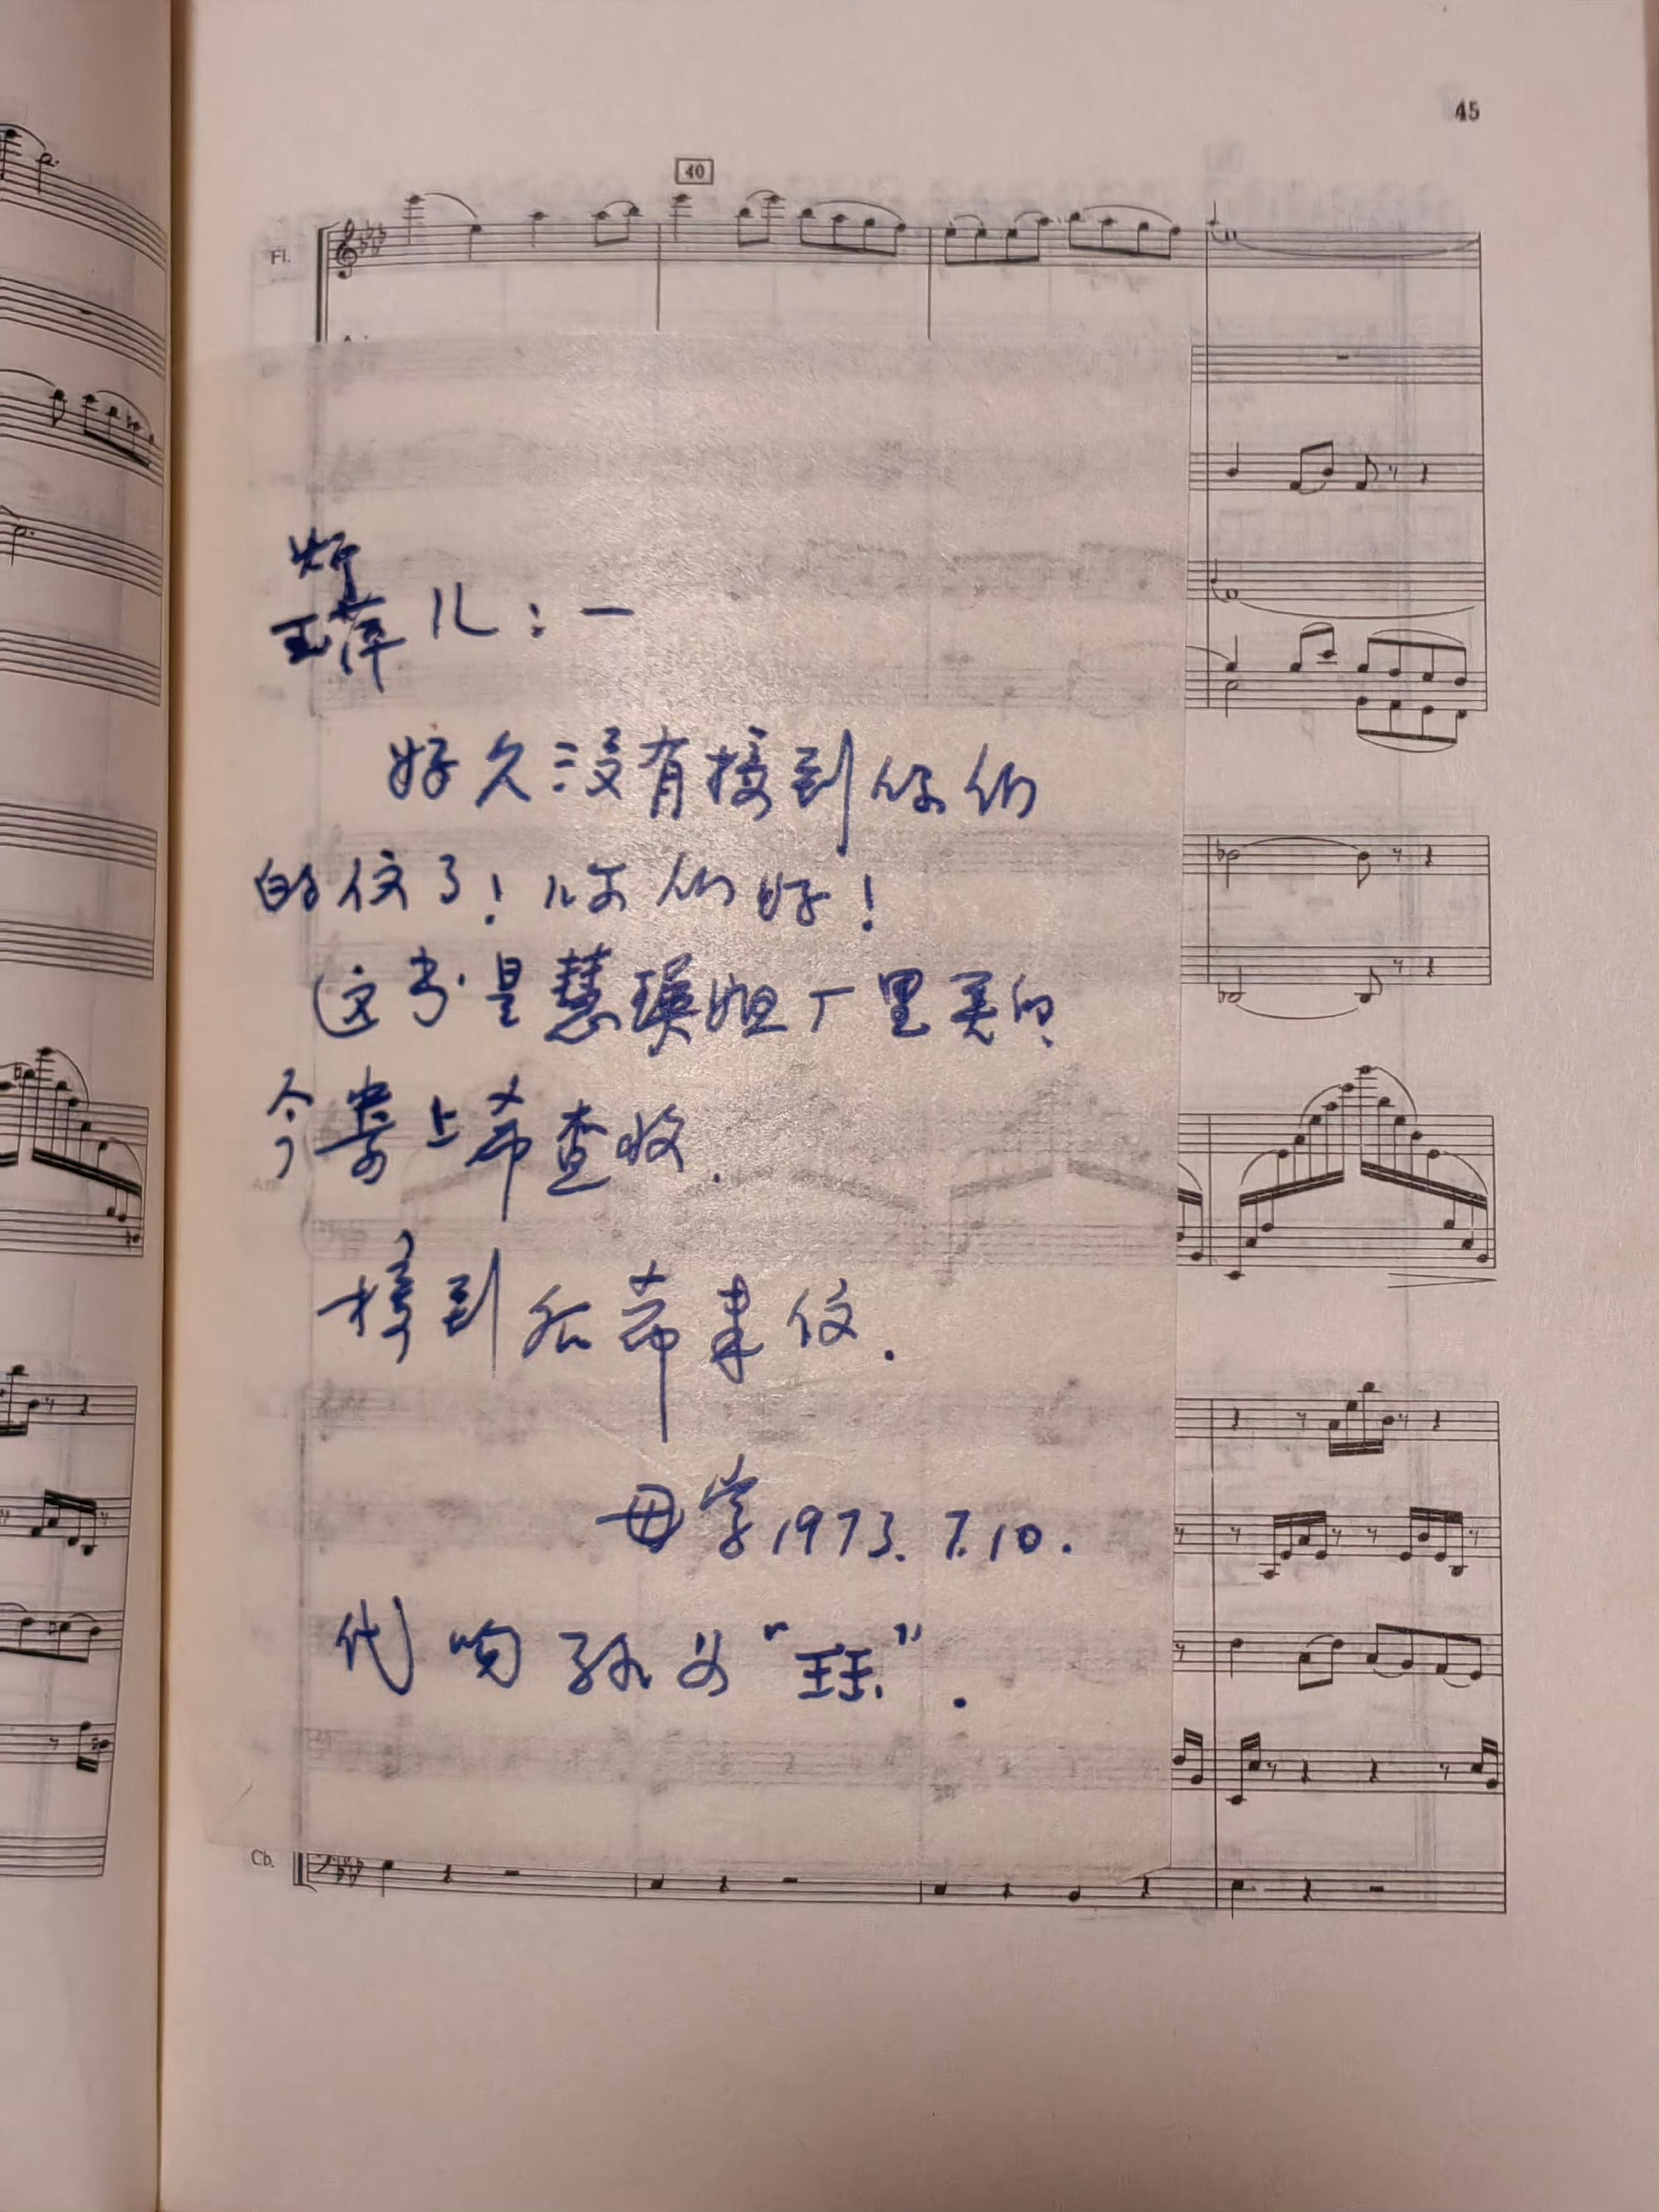 45
40
Fl.
炉
玉萍儿：—
好久没有接到你们
的信了！你们好！
这书是慧瑛姐厂里买的.
今寄上希查收.
接到后希来信.
母字1973.7.10.
代吻孙女“珏”.
Cb.